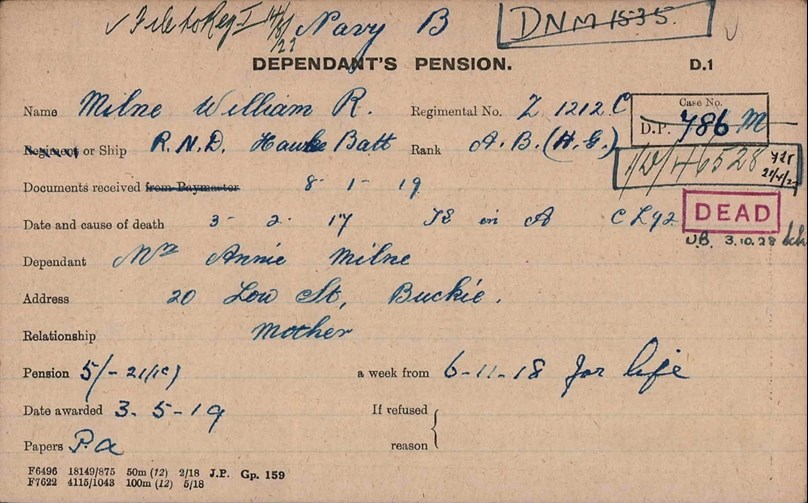 ✓ File to Reg I Navy B DNM 1535.
DEPENDANT'S PENSION. D.1
Name Milne William R. Regimental No. Z 1212 C Case No.
D.P. 786 M
Regiment or Ship R.N.D. Hawke Batt Rank A.B. (H.G.)
1/D/46528
Documents received from Paymaster 8 - 1 - 19
DEAD
Date and cause of death 3 - 2 - 17 in A
3.10.28
Dependant Mrs Annie Milne
Address 20 Low St, Buckie.
Relationship Mother
Pension 5/- 21(1c) a week from 6-11-18 for life
Date awarded 3-5-19 If refused
Papers P.a reason
F6496 18149/875 50m (12) 2/18 J.P. Gp. 159
F7622 4115/1043 100m (12) 5/18